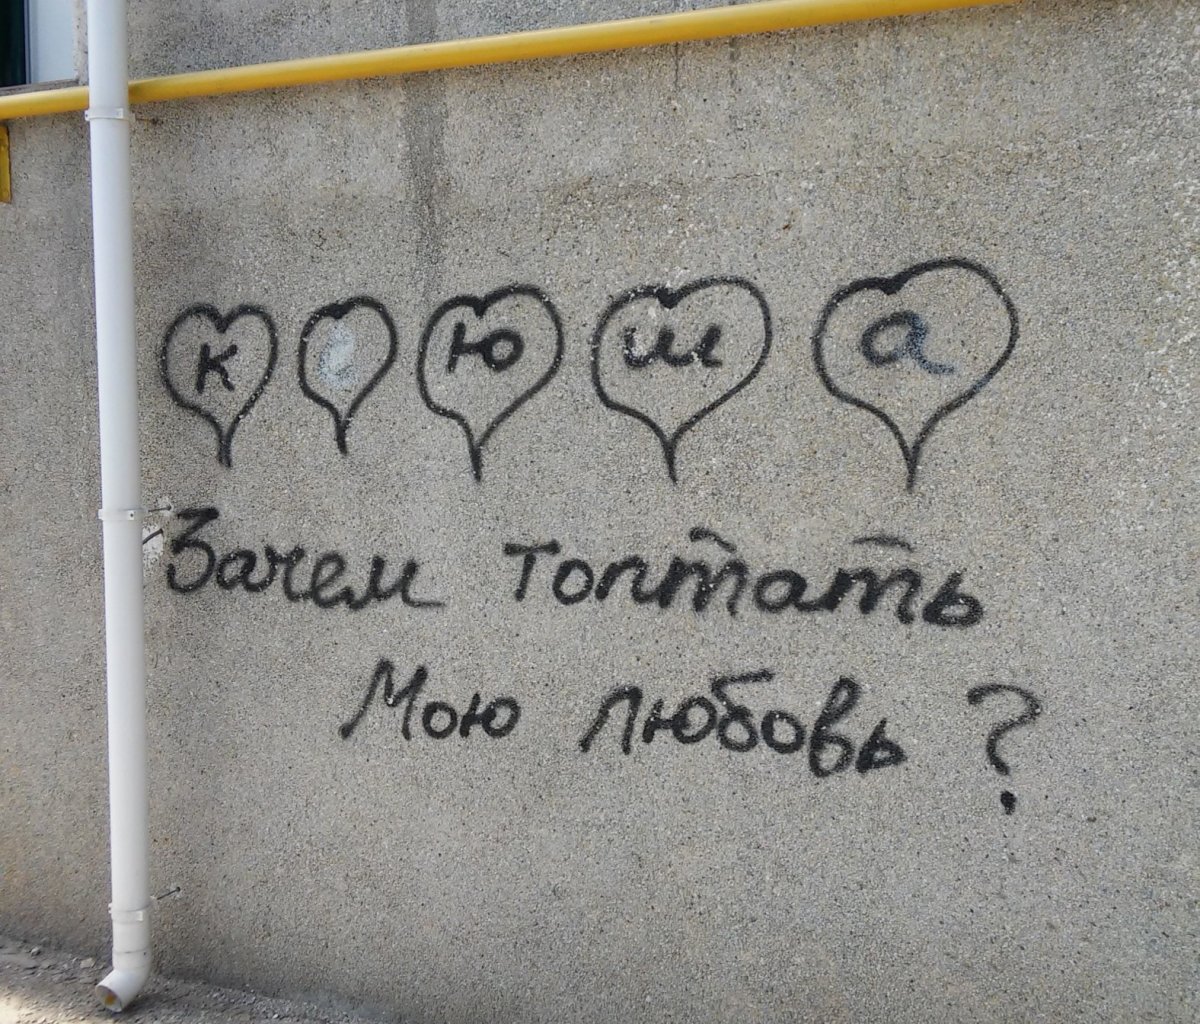 К с Ю Ш а
Зачем топтать
Мою любовь?